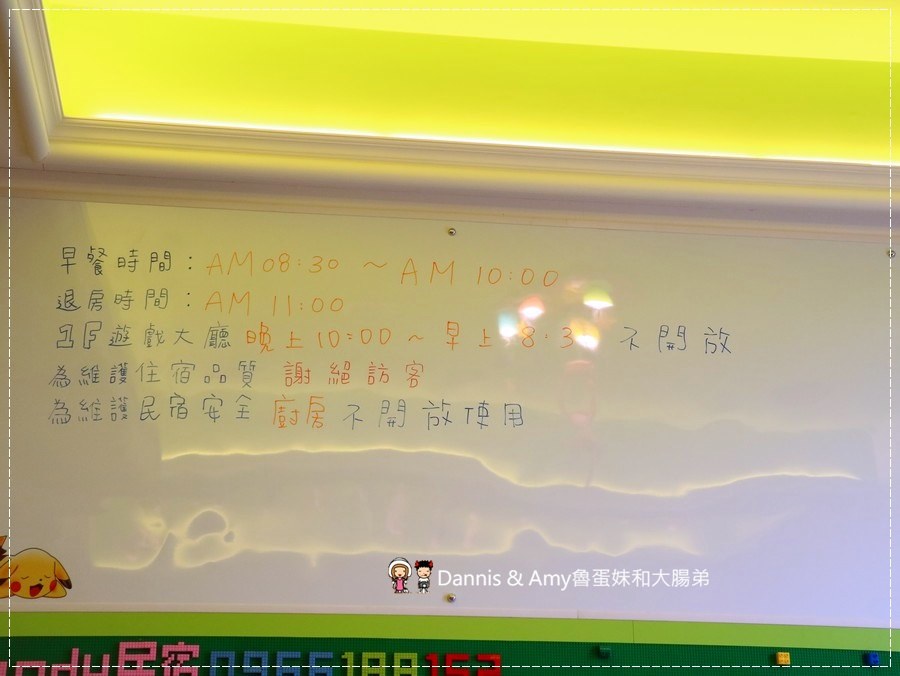 早餐時間：AM 08:30 ～ AM 10:00
退房時間：AM 11:00
1F遊戲大廳 晚上10:00 ～ 早上 8:30 不開放
為維護住宿品質 謝絕訪客
為維護民宿安全 廚房不開放使用
Dannis & Amy魯蛋妹和大腸弟
ndy民宿 0966188153